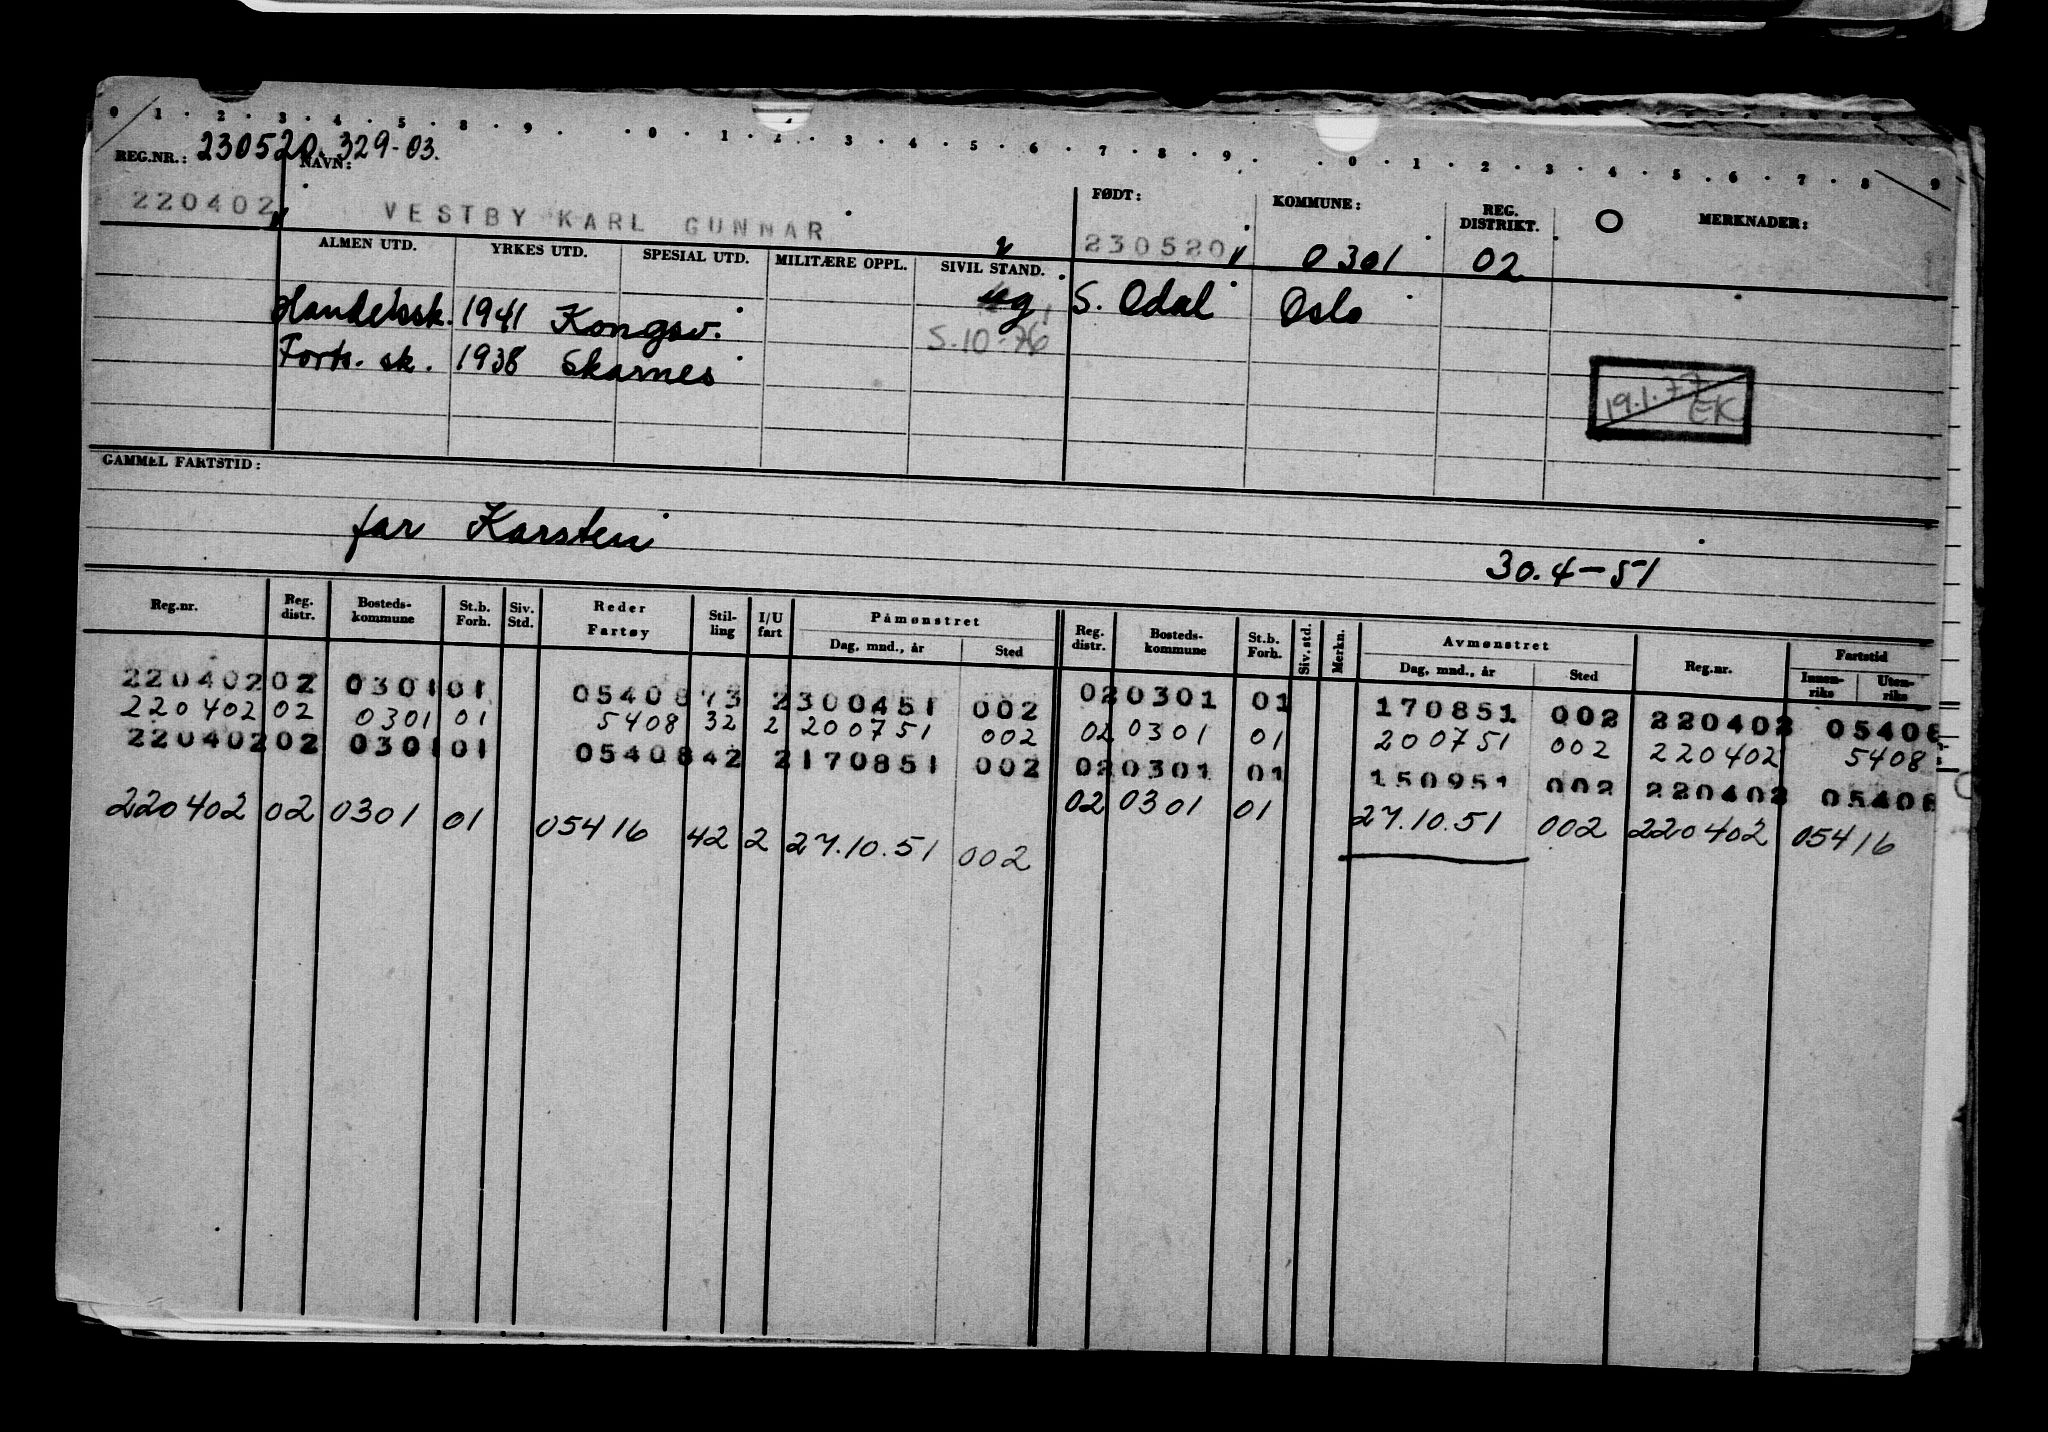 0 1 2 3 4 5 8 9 0 1 2 3 4 5 6 7 8 9 0 1 2 3 4 5 6 7 8 9
REG.NR.: 230520.329-03. NAVN: FØDT: KOMMUNE: REG. DISTRIKT. O MERKNADER:
220402 VESTBY KARL GUNNAR 230520 0301 02
ALMEN UTD. YRKES UTD. SPESIAL UTD. MILITÆRE OPPL. SIVIL STAND.
Handelssk. 1941 Kongsv. ug, S. Odal Oslo
Forts. sk. 1938 Skarnes S.10-76
19.1.77
EK
GAMMEL FARTSTID:
far Karsten
30.4-51
Reg.nr. Reg. distr. Bosteds-kommune St.b. Forh. Siv. Std. Reder Fartøy Stil-ling I/U fart Påmønstret Dag, mnd., år Sted Reg. distr. Bosteds-kommune St.b. Forh. Siv. std. Merkn. Avmønstret Dag, mnd., år Sted Reg.nr. Fartstid Innen-riks Uten-riks
220402 02 0301 01 05408 13 2 300451 002 02 0301 01 170851 002 220402 05408
220402 02 0301 01 5408 32 2 200751 002 02 0301 01 200751 002 220402 5408
220402 02 0301 01 05408 42 2 170851 002 02 0301 01 150951 002 220402 05408
220402 02 0301 01 05416 42 2 27.10.51 002 02 0301 01 27.10.51 002 220402 05416